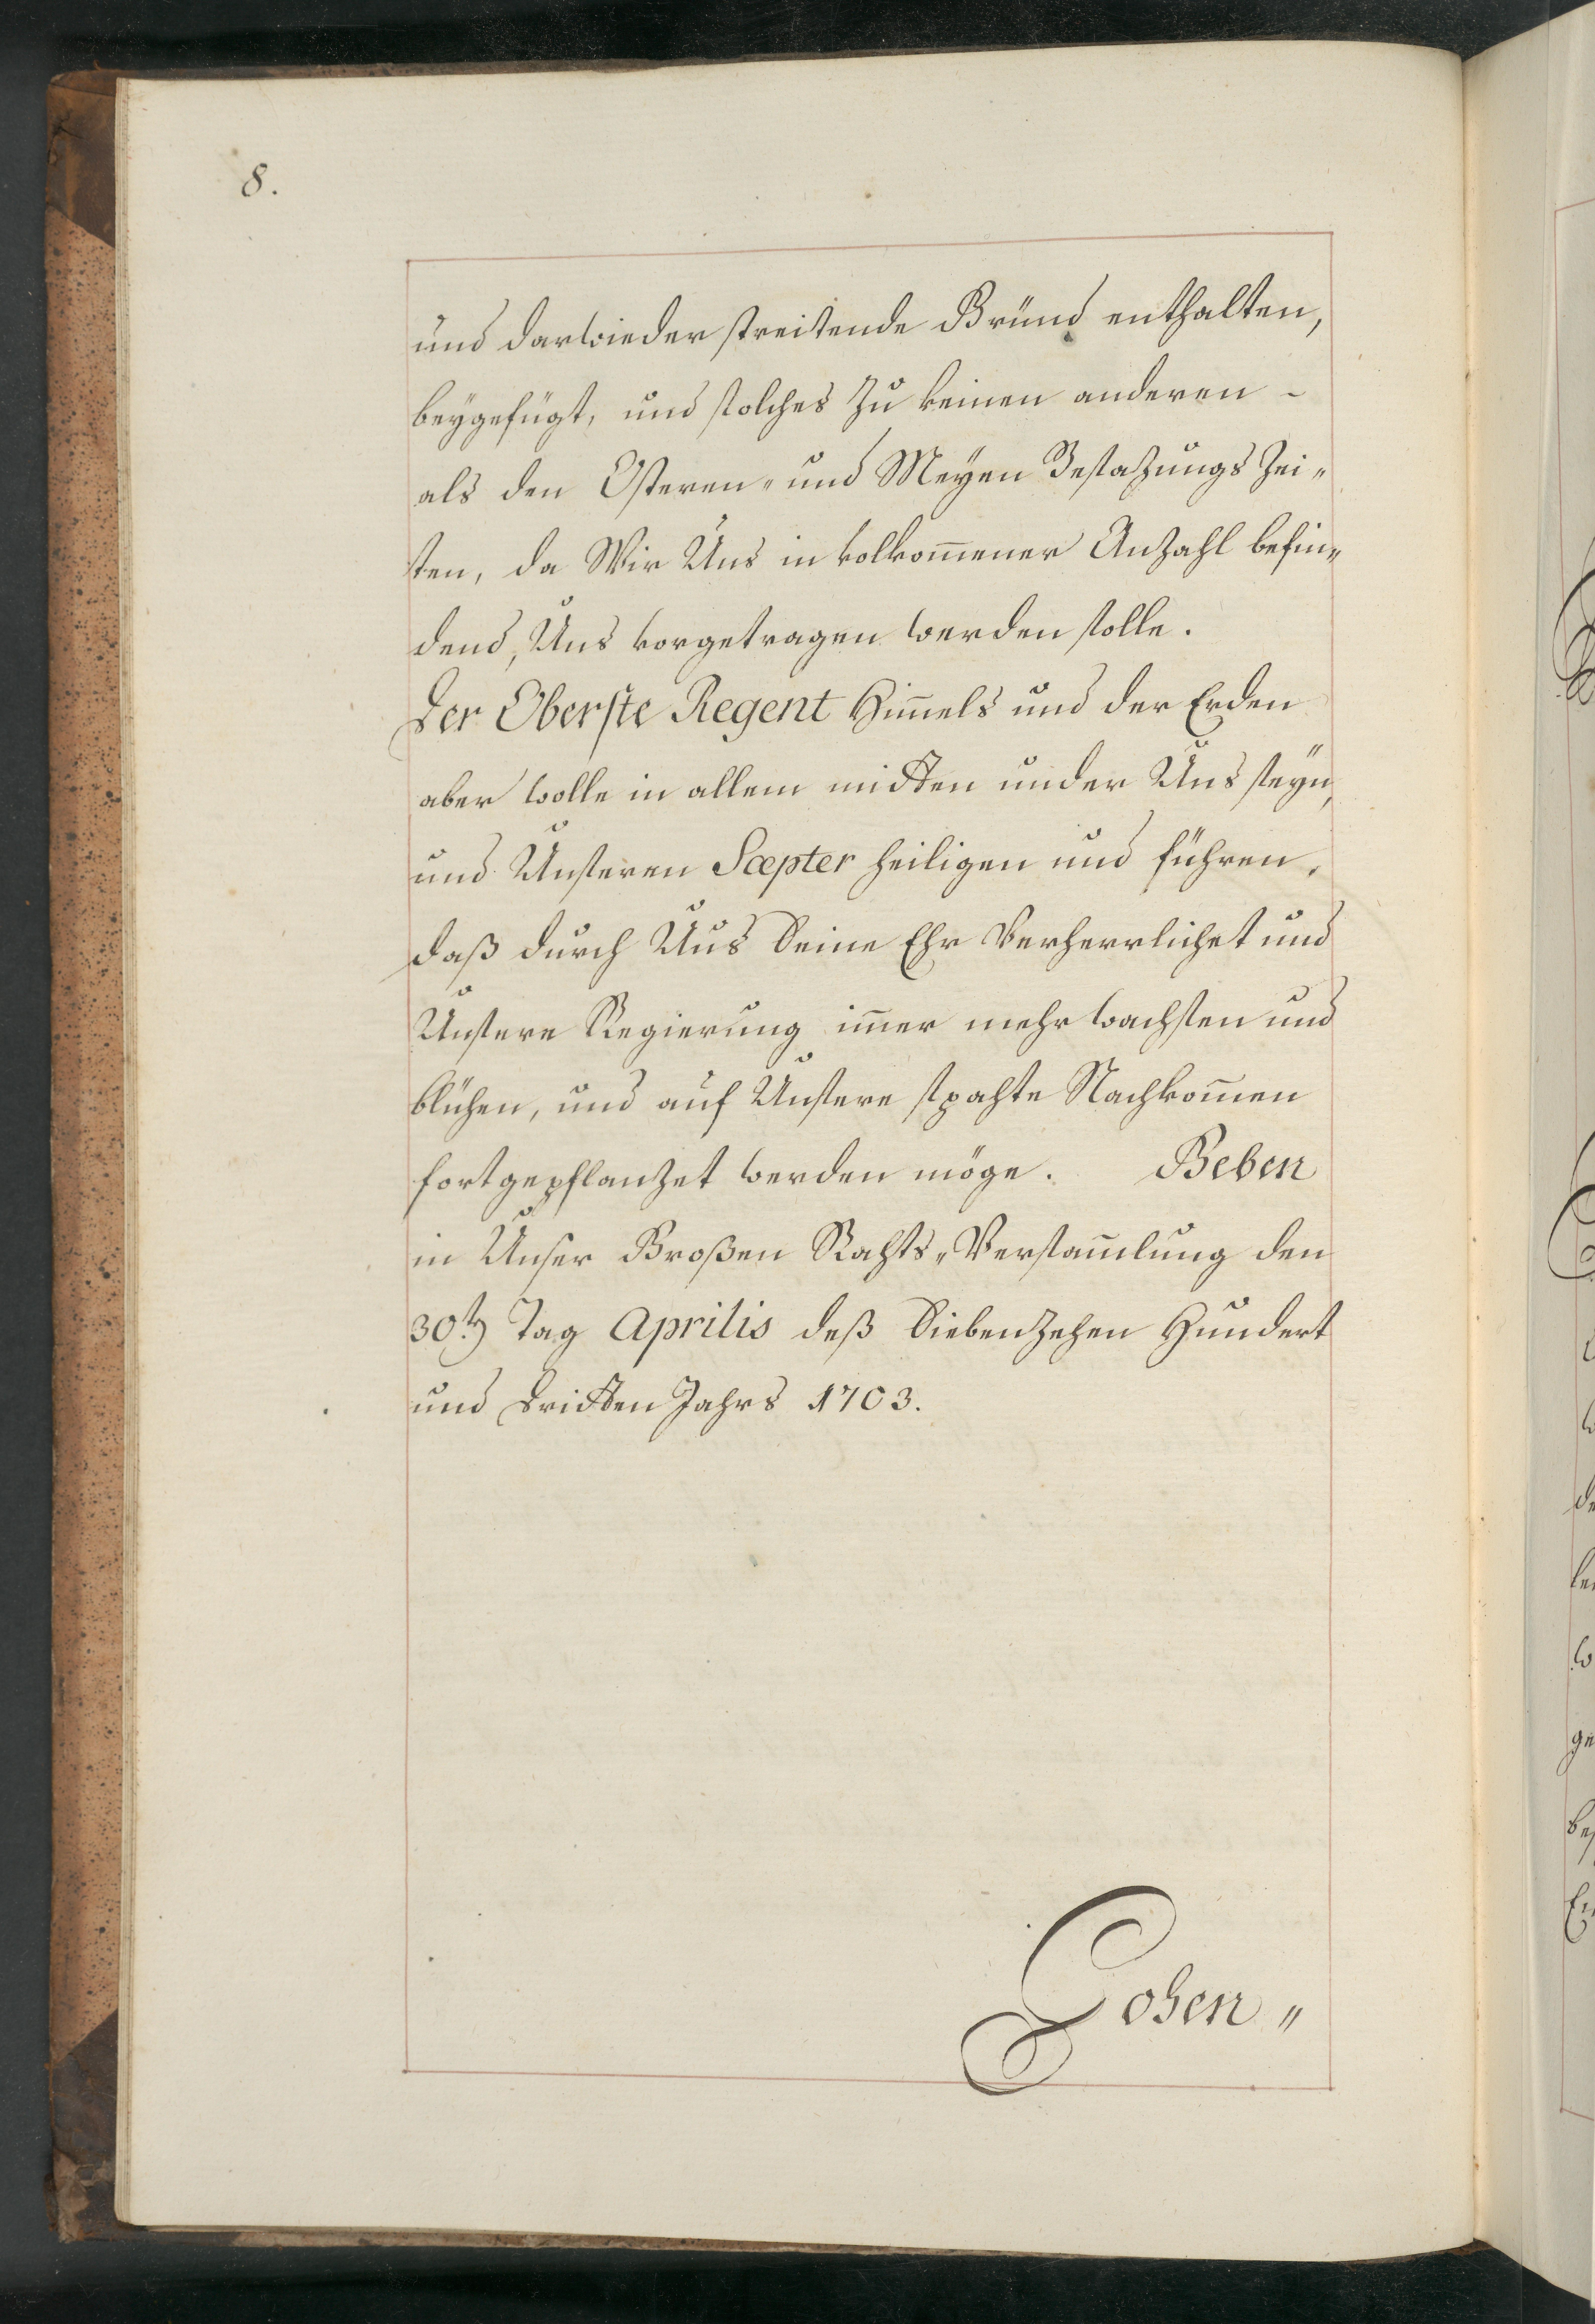 8.
und darwieder streitende Gründ enthalten,
beygefügt, und solches zu keinen anderen -
als den Osteren- und Meyen Besazungs Zei-
ten, da Wir Uns in volkom̄ener Anzahl befin-
dend, Uns vorgetragen werden solle.
Der Oberste Regent Him̄els und der Erden
aber wolle in allem mitten under Uns seyn,
und Unseren Scepter heiligen und führen,
daß durch Uns Seine Ehr Verherrlichet und
Unsere Regierung im̄er mehr wachsen und
blühen, und auf Unsere spahte Nachkom̄en
fortgepflanzet werden möge. Geben
in Unser Großen Rahts-Versam̄lung den
30.ten Tag Aprilis deß Siebenzehen Hundert
und Dritten Jahrs 1703.